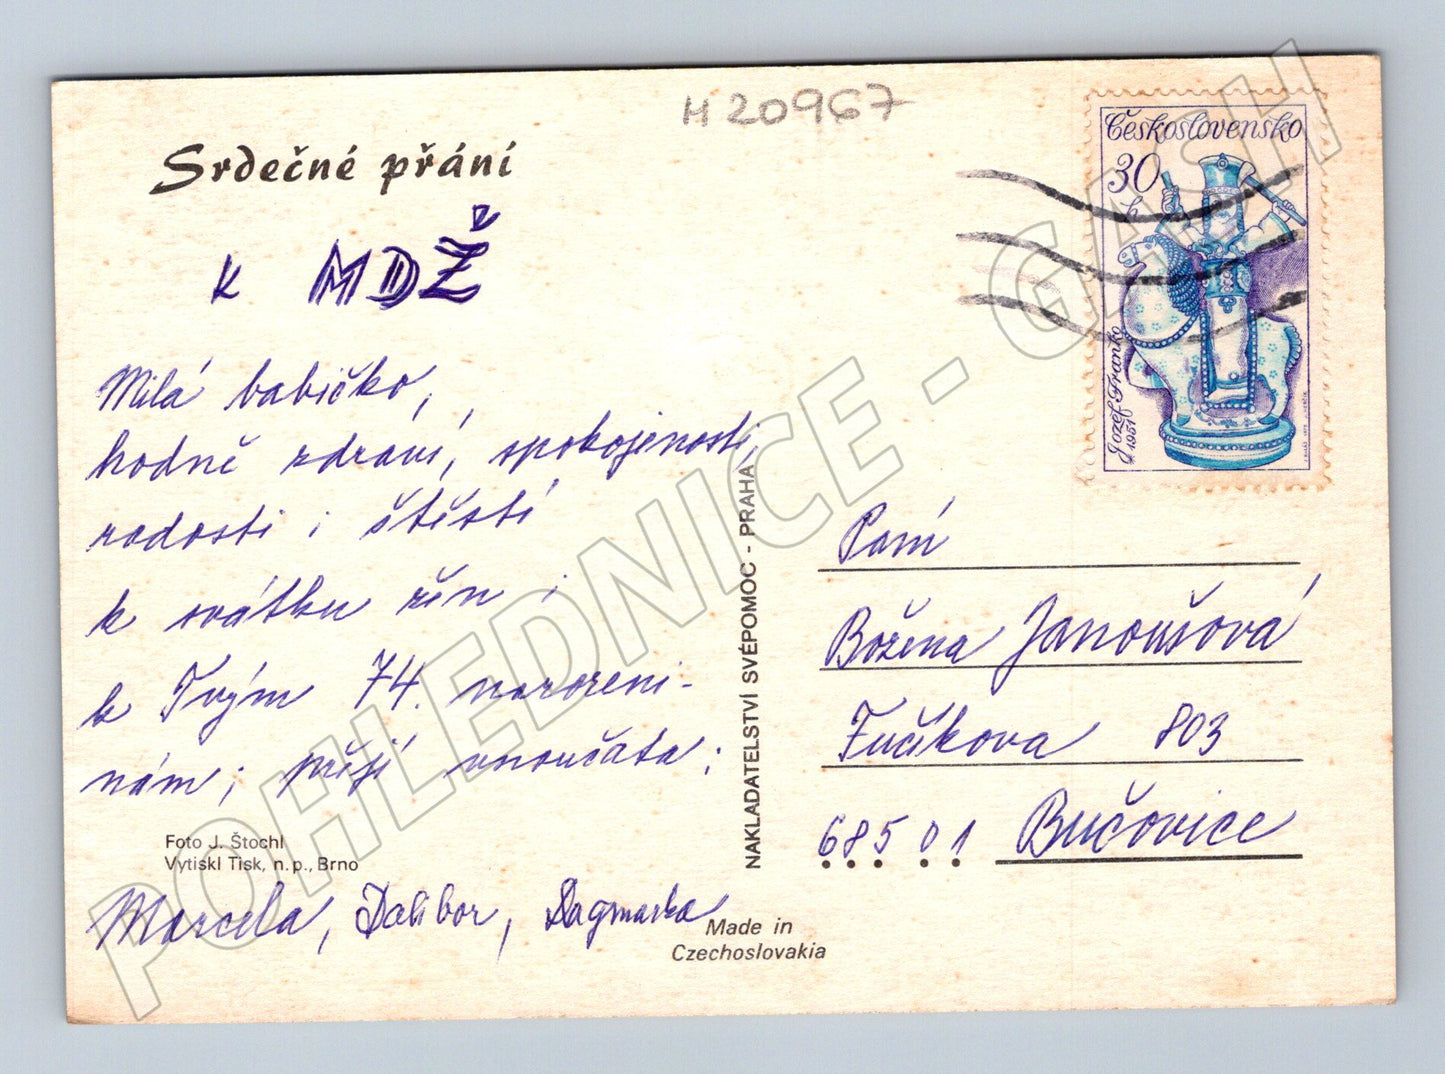 H 20967
Srdečné přání
K MDŽ
Milá babičko,
hodně zdraví, spokojenosti,
radosti i štěstí
k svátku žen i
k Tvým 74. narozeni-
nám, přejí vnoučata:
Foto J. Štochl
Vytiskl Tisk, n.p., Brno
Marcela, Dalibor, Dagmarka
Made in
Czechoslovakia
NAKLADATELSTVÍ SVÉPOMOC - PRAHA
Československo
30
h
Jozef Franko
1951
Paní
Božena Janoušová
Fučíkova 803
685 01 Bučovice
POHLEDNICE - GASH